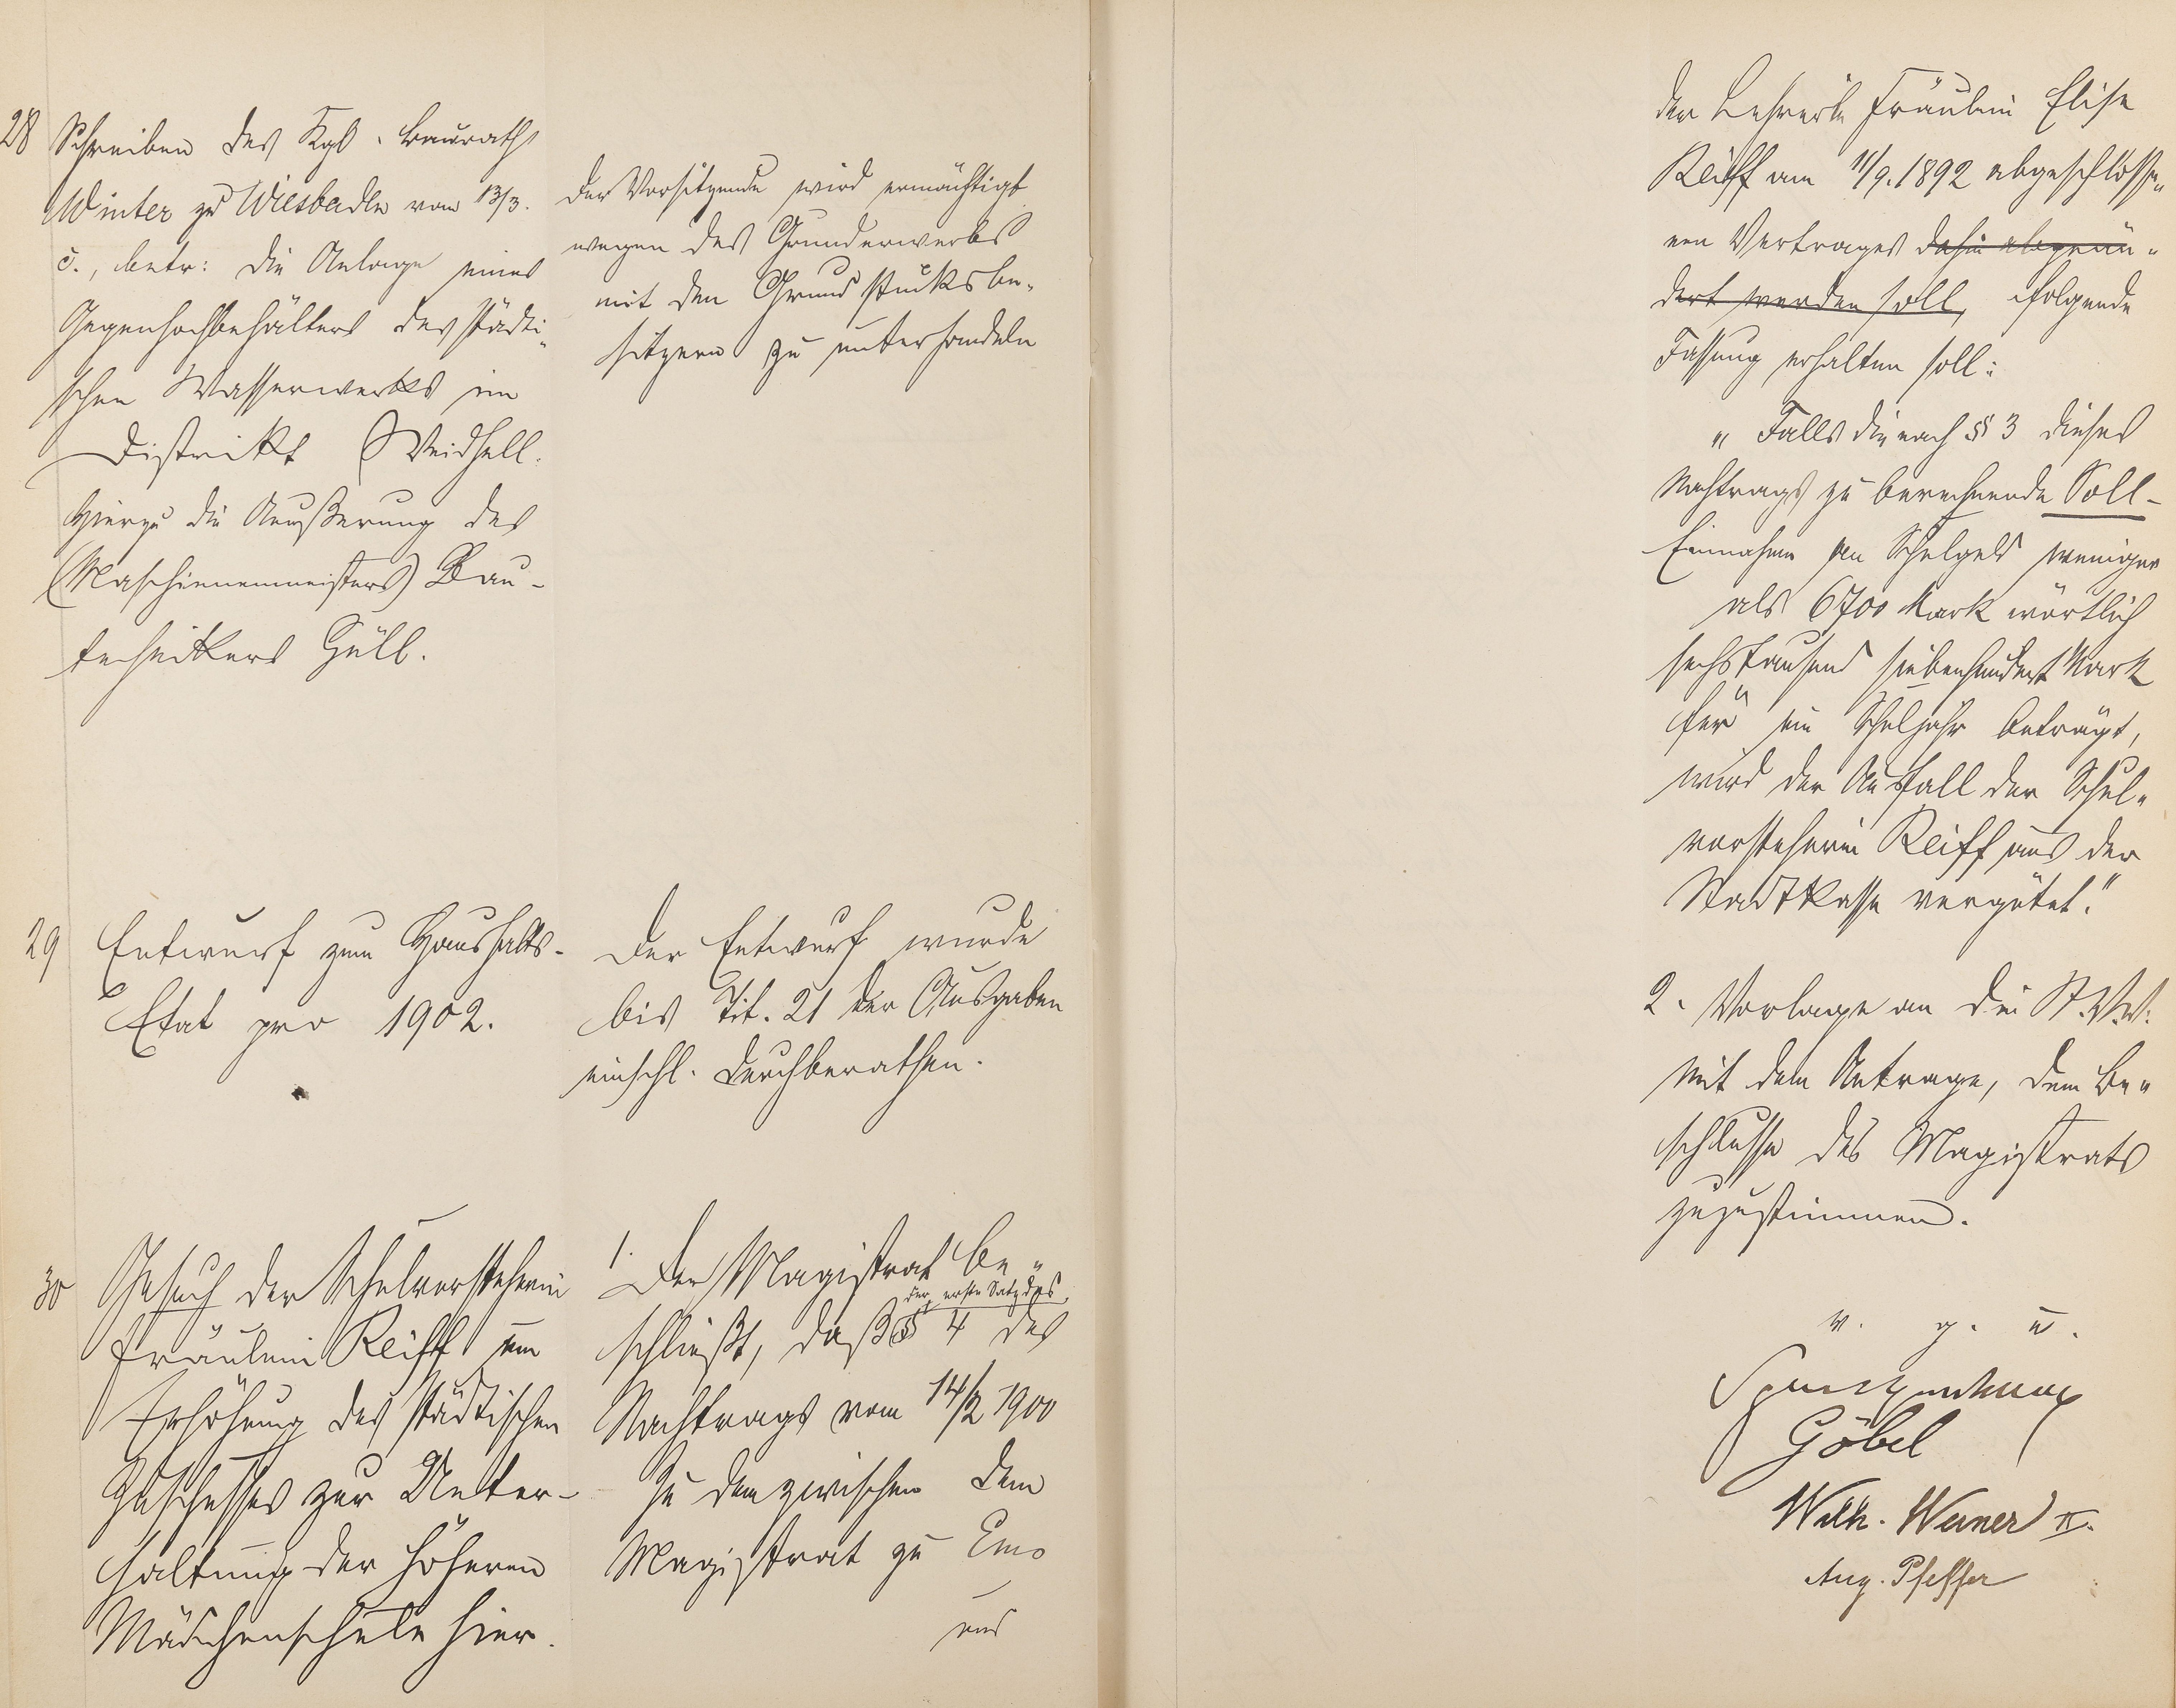 28
Schreiben des Kgl. Bauraths
Winter zu Wiesbaden vom 13/3.
c., betr: die Anlage eines
Gegenhochbehälters des städti-
schen Wasserwerkes im
Distrikt Weidhell.
Hierzu die Aeußerung des
(Maschienenmeisters) Bau-
technikers Güll.
Der Vorsitzende wird ermächtigt
wegen des Grunderwerbs
mit den Grundstücksbe-
sitzern zu unterhandeln
29
Entwurf zum Haushalts-
Etat pro 1902.
Der Entwurf wurde
bis Tit. 21 der Ausgaben
einschl. durchberathen.
30
Gesuch der Schulvorsteherin
Fräulein Reiff um
Erhöhung des städtischen
Zuschusses zur Unter-
haltung der höheren
Mädchenschule hier.
1. Der Magistrat be-
der erste Satz des
schließt, daß § 4 des
Nachtrags vom 14/2 1900
zu dem zwischen dem
Magistrat zu Ems
und
der Lehrerin Fräulein Elise
Reiff am 11/9. 1892 abgeschlosse-
nen Vertrages dahin abgeän-
dert werden soll, folgende
Fassung erhalten soll:
„Falls die nach § 3 dieses
Nachtrags zu berechnende Soll-
Einnahme an Schulgeld weniger
als 6700 Mark wörtlich
sechstausend siebenhundert Mark
für ein Schuljahr beträgt,
wird der Ausfall der Schul-
vorsteherin Reiff aus der
Stadtkasse vergütet."
2. Vorlage an die St.V.V.
mit dem Antrage, dem Be-
schlusse des Magistrats
zuzustimmen.
v. g. u.
Göbel
Wilh. Werner II.
Aug. Pfeffer